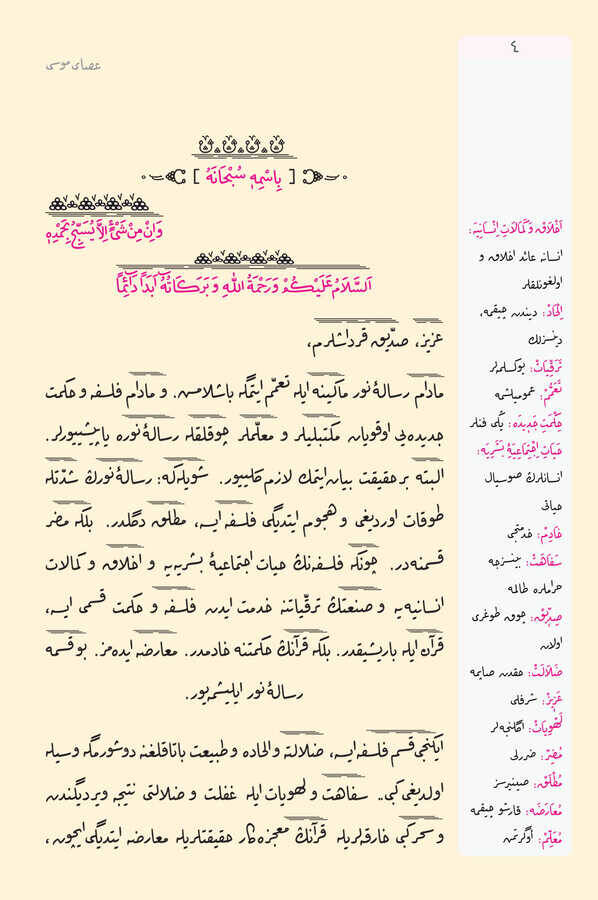 ٤
عصاى موسى
[ بِاسْمِهٖ سُبْحَانَهُ ]
وَاِنْ مِنْ شَىْءٍ اِلَّا يُسَبِّحُ بِحَمْدِهٖ
اَلسَّلَامُ عَلَيْكُمْ وَرَحْمَةُ اللّٰهِ وَبَرَكَاتُهُ اَبَدًا دَائِمًا
عزيز، صدّيق قرداشلرم،
مادام رسالۀ نور ماكينه ايله تعمّم ايتمگه باشلامش. و مادام فلسفه و حكمت
جديده‌يى اوقويان مكتبليلر و معلّملر چوقلقله رسالۀ نوره ياپيشييورلر.
البته بر حقيقت بيان ايتمك لازم كلييور. شويله‌كه: رسالۀ نورڭ شدّتله
طوقات اورديغى و هجوم ايتديگى فلسفه ايسه، مطلق دگلدر. بلكه مضر
قسمنه‌در. چونكه فلسفه‌نڭ حيات اجتماعيۀ بشريه‌يه و اخلاق و كمالات
انسانيه‌يه و صنعتڭ ترقّياتنه خدمت ايدن فلسفه و حكمت قسمى ايسه،
قرآن ايله باريشيقدر. بلكه قرآنڭ حكمتنه خادمدر. معارضه ايده‌مز. بو قسمه
رسالۀ نور ايليشمه‌يور.
ايكنجى قسم فلسفه ايسه، ضلالته و الحاده و طبيعت باتاقلغنه دوشورمگه وسيله
اولديغى كبى.. سفاهت و لهويات ايله غفلت و ضلالتى نتيجه ويرديگندن
و سحر كبى خارقه‌لريله قرآنڭ معجزه‌كار حقيقتلريله معارضه ايتديگى ايچون،
اَخْلَاق وَكَمَالَاتِ اِنْسَانِيَه:
انسانه عائد اخلاق و
اولغونلقلر
اِلْحَادْ: ديندن چيقمه،
دينسزلك
تَرَقِّيَاتْ: يوكسلمه‌لر
تَعَمُّمْ: عموميلشمه
حِكْمَتِ جَدِيدَه: يڭى فنلر
حَيَاتِ اِجْتِمَاعِيَۀِ بَشَرِيَه:
انسانلرڭ صوسيال
حياتى
خَادِمْ: خدمتجى
سَفَاهَتْ: بينسزجه
حراملره طالمه
صِدِّيقْ: چوق طوغرى
اولان
ضَلَالَتْ: حقدن صاپمه
عَزِيزْ: شرفلى
لَهْوِيَاتْ: اگلنجه‌لر
مُضِرْ: ضررلى
مُطْلَقْ: صينيرسز
مُعَارَضَه: قارشو چيقمه
مُعَلِّمْ: اوگرتمن